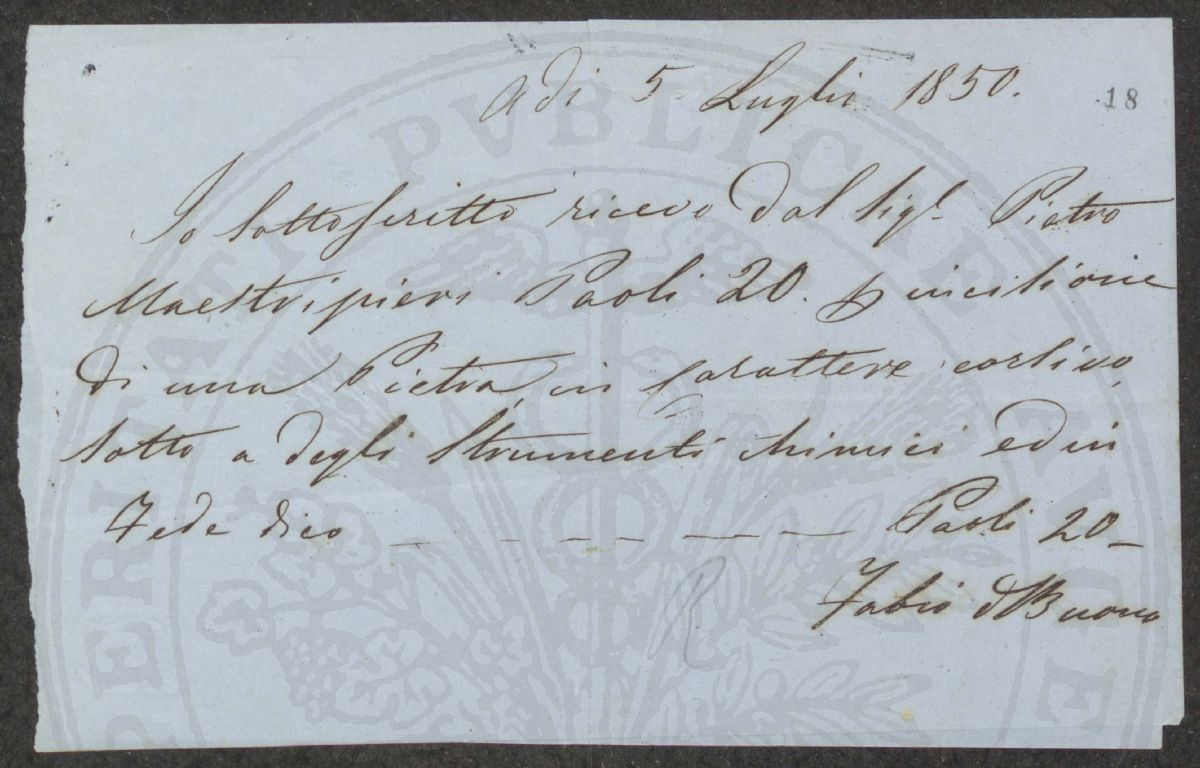 Adì 5 Luglio 1850.
18
Io sottoscritto ricevo dal Sigr. Pietro
Maestripieri Paoli 20. p incisione
di una Pietra, in Carattere corsivo,
sotto a degli Strumenti chimici ed in
Fede dico — — — — — — Paoli 20 —
Fabio d Buono
R
PERITATI PVBLICAE